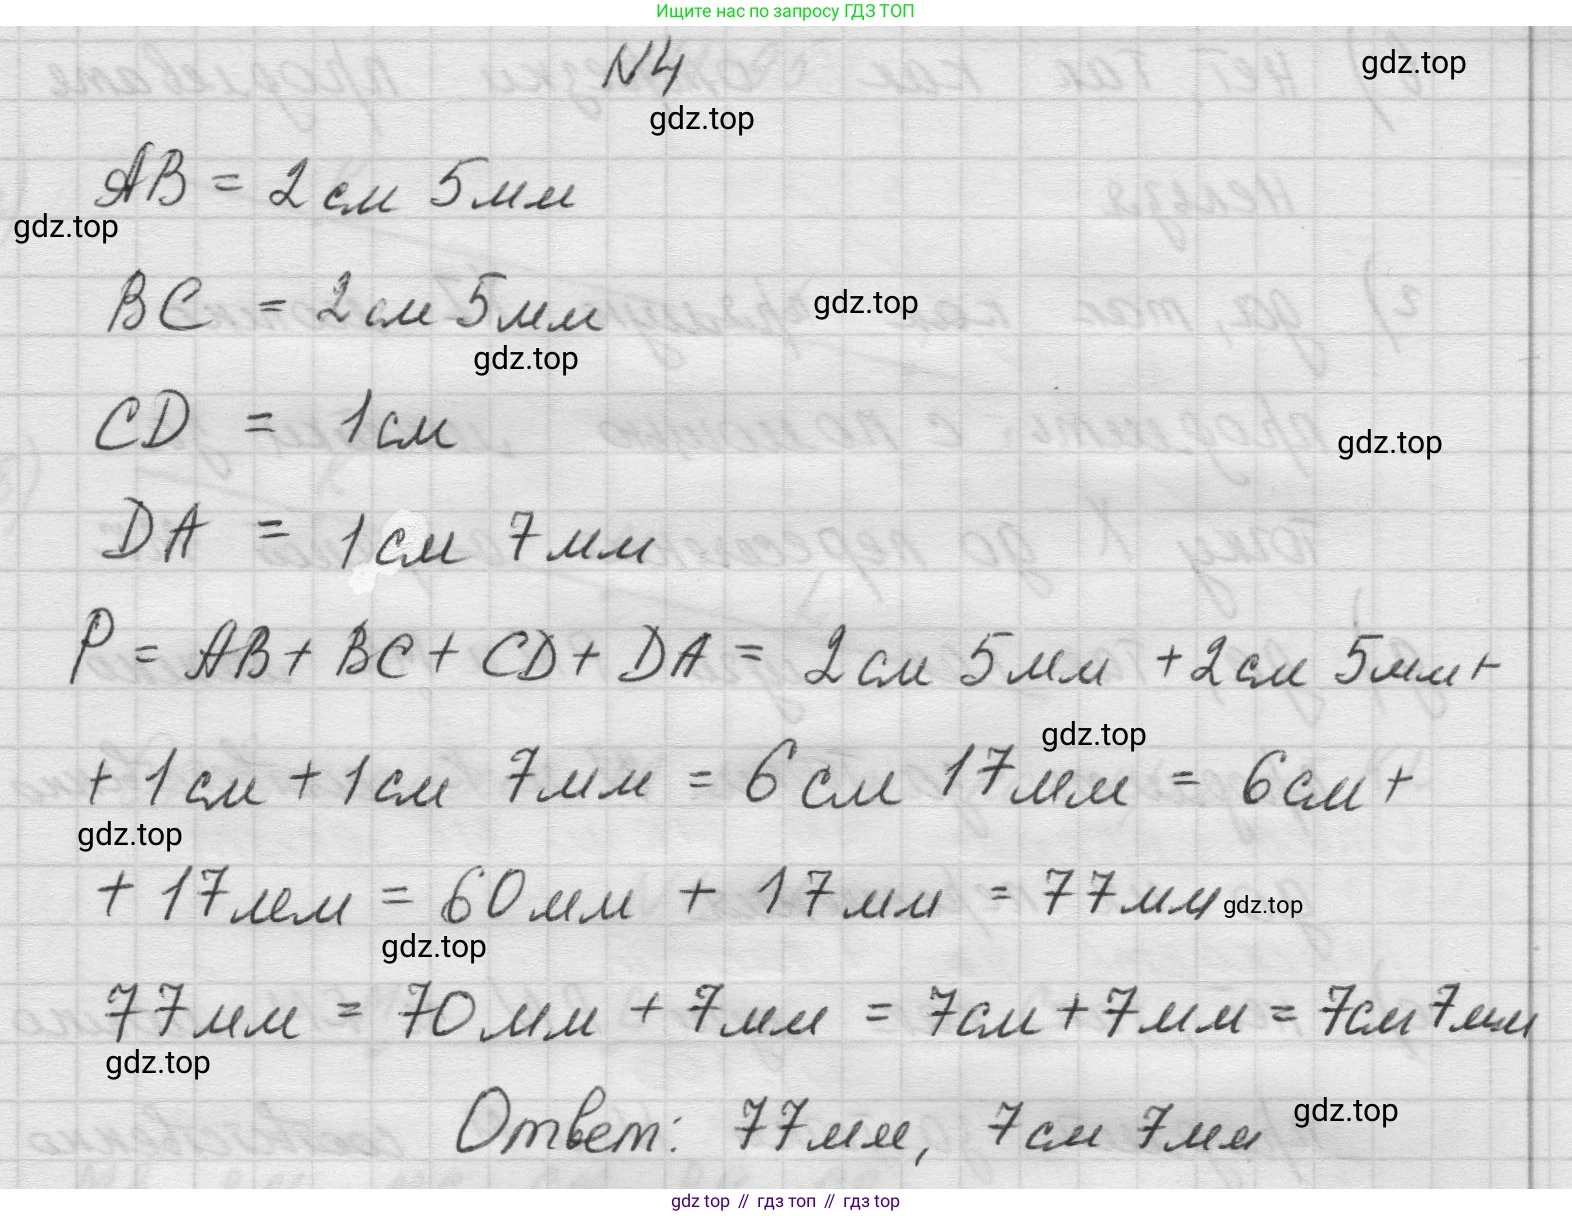 Ищите нас по запросу ГДЗ ТОП
N4
gdz.top
gdz.top
AB = 2 см 5 мм
gdz.top
BC = 2 см 5 мм
gdz.top
gdz.top
CD = 1 см
gdz.top
DA = 1 см 7 мм
P = AB + BC + CD + DA = 2 см 5 мм + 2 см 5 мм +
gdz.top
+ 1 см + 1 см 7 мм = 6 см 17 мм = 6 см +
gdz.top
+ 17 мм = 60 мм + 17 мм = 77 мм
gdz.top
gdz.top
77 мм = 70 мм + 7 мм = 7 см + 7 мм = 7 см 7 мм
gdz.top
Ответ: 77 мм, 7 см 7 мм
gdz.top
gdz top // гдз топ // гдз top